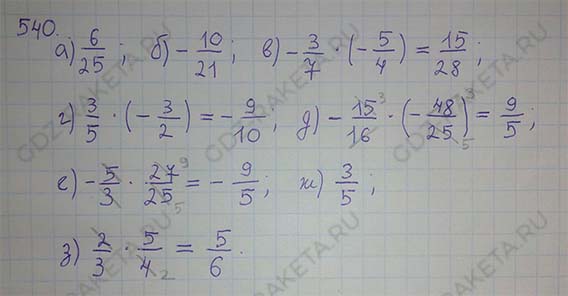 540.
а) 6/25; б) -10/21; в) -3/7 · (-5/4) = 15/28;
г) 3/5 · (-3/2) = -9/10; д) -15/16 3 · (-48/25) 3 5 = 9/5;
е) -5/3 · 27/25 9 5 = -9/5; ж) 3/5;
з) 2/3 · 5/4 2 = 5/6.
GDZRAKETA.RU